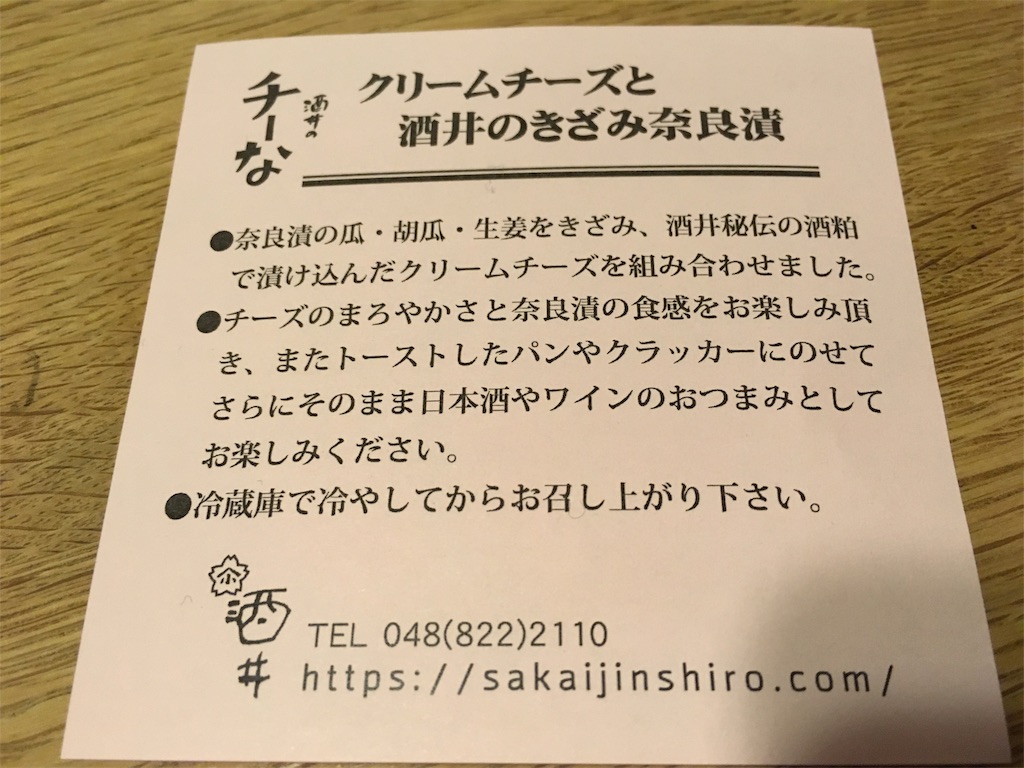 酒井の
チーな
クリームチーズと
酒井のきざみ奈良漬
●奈良漬の瓜・胡瓜・生姜をきざみ、酒井秘伝の酒粕
で漬け込んだクリームチーズを組み合わせました。
●チーズのまろやかさと奈良漬の食感をお楽しみ頂
き、またトーストしたパンやクラッカーにのせて
さらにそのまま日本酒やワインのおつまみとして
お楽しみください。
●冷蔵庫で冷やしてからお召し上がり下さい。
酒井
TEL 048(822)2110
https://sakaijinshiro.com/